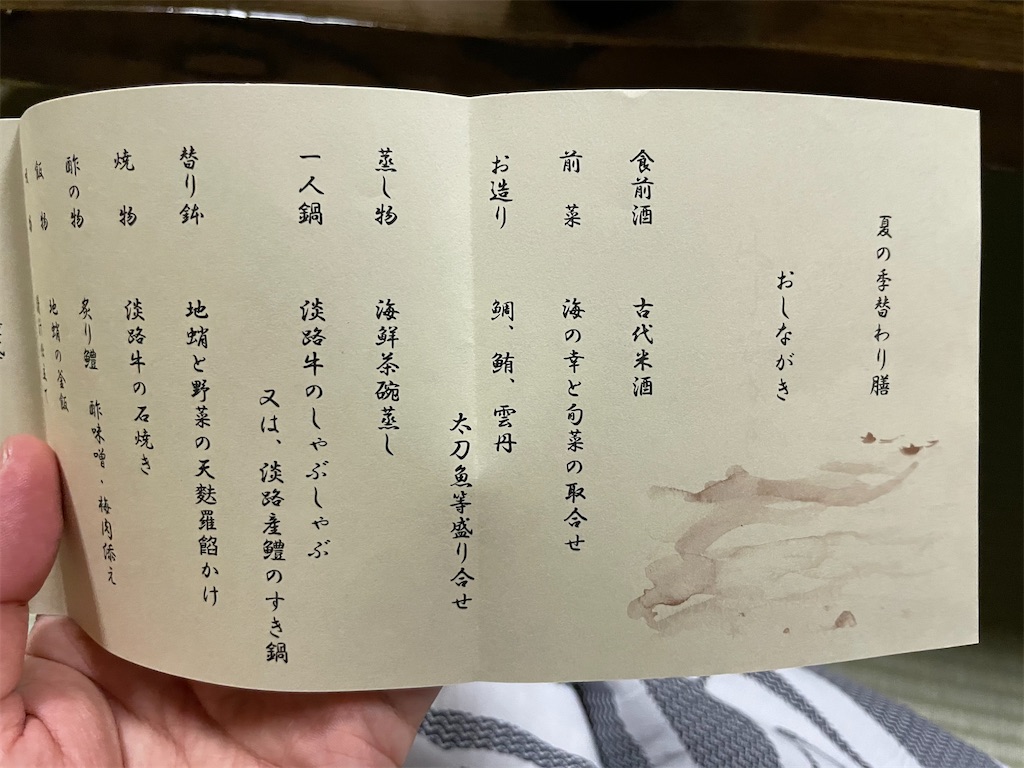 夏の季替わり膳
おしながき
食前酒 古代米酒
前菜 海の幸と旬菜の取合せ
お造り 鯛、鮪、雲丹
太刀魚等盛り合せ
蒸し物 海鮮茶碗蒸し
一人鍋 淡路牛のしゃぶしゃぶ
又は、淡路産鱧のすき鍋
替り鉢 地蛸と野菜の天麩羅餡かけ
焼物 淡路牛の石焼き
酢の物 炙り鱧 酢味噌・梅肉添え
飯物 地蛸の釜飯